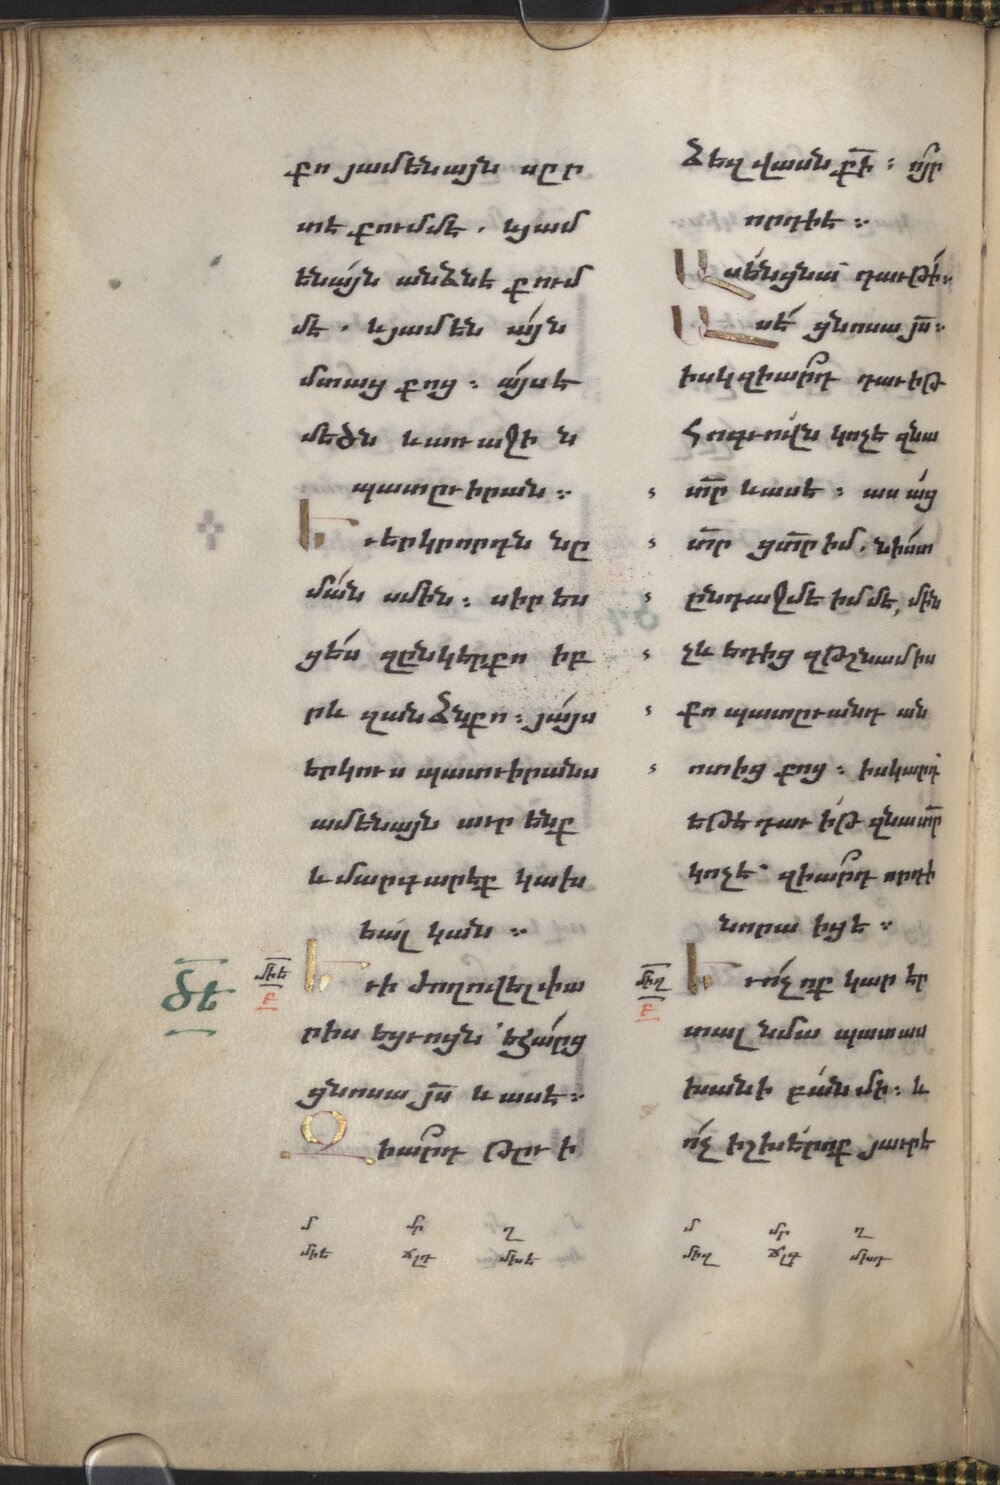 քո յամենայն սըր
տե քումմէ. և յամ
ենայն անձնէ քում
մէ. և յամեն այն
մտաց քոց։ այս է
մեծն և առաջի ն
պատըւիրան։
Եւ երկրորդն նը
ման սմին։ սիր ես
ցես զընկերքո իբ
րև զանձնքո։ յայս
երկուս պատուիրանս
ամենայն աւր ենք
և մարգարեք կախ
եալ կան։
ծե
միե
բ
Եւ ի ժողովել փա
րիս եցւոցն՝ եհարց
ցնոսա յս և ասէ։
Զիարդ թըւ ի
ձեզ վասն քի։ ոյր
որդիէ։
Ասեն ցնա՝ դաւթի։
Ասէ ցնոսա յս։
իսկ զիարդ դաւիթ
հոգւովն կոչէ զնա
տր և ասէ։ աս աց
տր ցտր իմ. նիստ
ընդաջմէ իմմէ, մին
չև եդից զթշնամիս
քո պատըւանդ ան
ոտից քոց։ իսկ արդ
եթէ դաւ իթ զնա տր
կոչէ՝ զիարդ որդի
նորա իցէ։
միզ
բ
Եւ ոչ ոք կար էր
տալ նմա պատաս
խանի բան մի։ և
ոչ իշխեր ոք յաւրէ
մ մր ղ
միե ճլդ միսե
մ մր ղ
միզ ճլգ միսդ